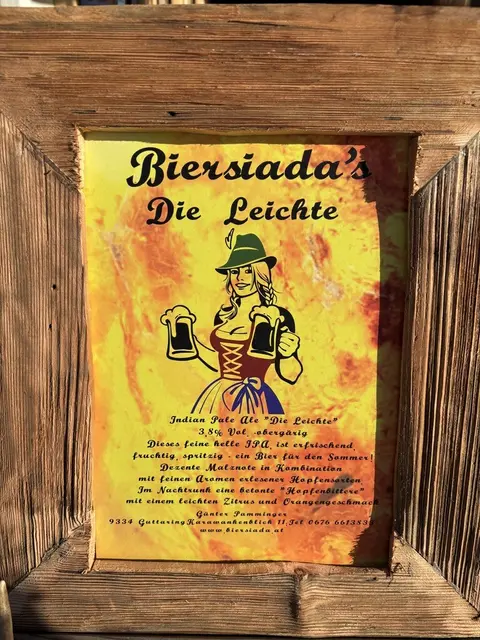 Biersiada's
Die Leichte
Indian Pale Ale "Die Leichte"
3,8% Vol, obergärig
Dieses feine helle IPA ist erfrischend,
fruchtig, spritzig - ein Bier für den Sommer!
Dezente Malznote in Kombination
mit feinen Aromen erlesener Hopfensorten
Im Nachtrunk eine betonte "Hopfenbittere"
mit einem leichten Zitrus und Orangengeschmack
Günter Pamminger
9334 Guttaring Karawankenblick 11, Tel 0676
www.biersiada.at